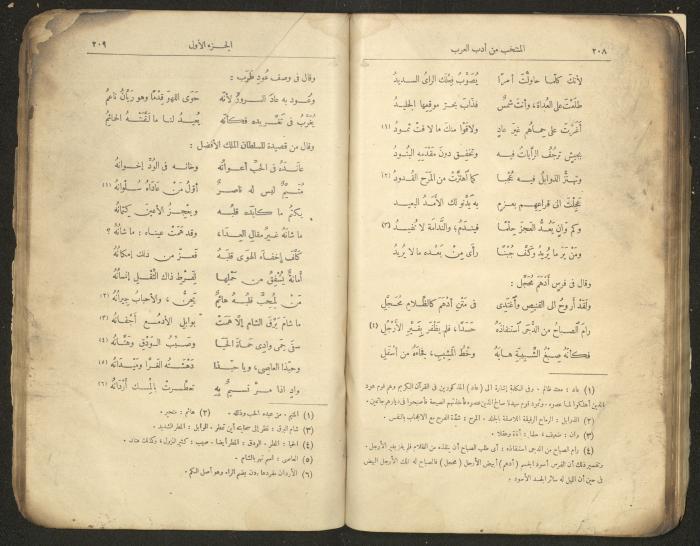 ٢٠٨
المنتخب من أدب العرب
لأنك كلما حاولت أمرا يصوب فعلك الرأى السديد
طلعت على العداة، وأنت شمس فذاب بحر موقعها الجليد
أغرت على حماهم غير عاد ولاقوا منك ما لاقت ثمود (١)
بجيش ترجف الرايات فيه وتخفق دون مقدمه البنود
وتهتز الذوابل فيه عجبا كما اهتزت من المرح القدود (٢)
عجلت الى قراعهم بعزم به يدنو لك الأمد البعيد
وكم وان يعد العجز حلما فيندم؛ والندامة لا تفيد (٣)
ومن يرما يريد وكف جبنا رأى من بعده ما لا يريد
وقال فى فرس أدهم محجل :
ولقد أروح الى القنيص وأغتدى فى متن أدهم كالظلام محجل
رام الصباح من الدجى استنقاذه حسدا، فلم يظفر بغير الأرجل (٤)
فكأنه صبغ الشبيبة هابه وخط المشيب، بجاءه من أسفل
(١) عاد : معتد ظالم . وفى الكلمة إشارة الى (عاد) المذكورين فى القرآن الكريم وهم قوم هود
الذين أهلكوا لما عصوه . وثمود قوم سيدنا صالح الذين عصوه فأخذتهم الصيحة فأصبحوا فى ديارهم جاثمين .
(٢) الذوابل : الرماح الرقيقة اللاصقة بالجلد . المرح : شدة الفرح مع الاعجاب بالنفس .
(٣) وان : ضعيف . حلما : أناة وعقلا .
(٤) رام الصباح من الدجى استنقاذه : أى طلب الصباح أن ينقذه من الظلام فلم يفز بغير الأرجل .
وتفسير ذلك أن الفرس أسود الجسم (أدهم) أبيض الأرجل (محجل) فالصباح له تلك الأرجل البيض
فى حين أن الليل له سائر الجسد الأسود .
الجزء الأول
٢٠٩
وقال فى وصف عود طرب :
وعود به عاد السرور لأنه حوى اللهو قدما وهو ريان ناعم
يغرب فى تغريده فكأنه يعيد لنا ما لقنته الحمائم
وقال من قصيدة للسلطان الملك الأفضل :
عانده فى الحب أعوانه وخانه فى الود إخوانه
متيم ليس له ناصر أول من عاداه سلوانه (١)
يكتم ما كابده قلبه ويعجز الأعين كتمانه
ما شانه غير مقال العدا، وقد همت عيناه : ما شانه ؟
كلف إخفاء الهوى قلبه فعز من ذلك إمكانه
أمانة يشفق من حملها لفرط ذاك الثقل إنسانه
من لمحب قلبه هائم يحن، والأحباب جيرانه (٢)
ما شام برق الشام إلا همت بوابل الأدمع أجفانه (٣)
سقى حمى وادى حماة الحيا وصيب الودق وهتانه (٤)
وحبذا العاصى، ويا حبذا دهشته الغرا وميدانه (٥)
واد اذا مر نسيم به تعطرت بالمسك أردانه (٦)
(١) المتيم . من عبده الحب وذلله . (٢) هائم : متحير .
(٣) شام البرق : نظر إلى سحابه أين تمطر . الوابل : المطر الشديد .
(٤) الحيا : المطر . الودق : المطر أيضا . صيب : كثير النزول، وكذلك هتان .
(٥) العاصى : اسم نهر بالشام .
(٦) الأردان مفردها ردن بضم الراء وهو أصل الكم .